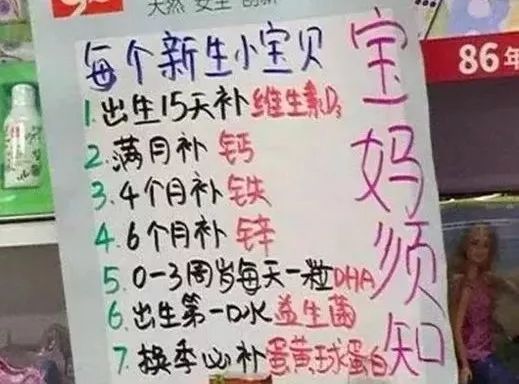 天然 安全 创新
每个新生小宝贝
1. 出生15天补 维生素D3
2. 满月补 钙
3. 4个月补 铁
4. 6个月补 锌
5. 0-3周岁每天一粒DHA
6. 出生第一口水 益生菌
7. 换季必补 蛋黄球蛋白
宝妈须知
86年